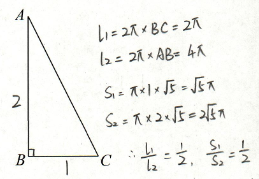 A
2
B
1
C
l₁ = 2π × BC = 2π
l₂ = 2π × AB = 4π
S₁ = π × 1 × √5 = √5π
S₂ = π × 2 × √5 = 2√5π
∴ l₁/l₂ = 1/2, S₁/S₂ = 1/2